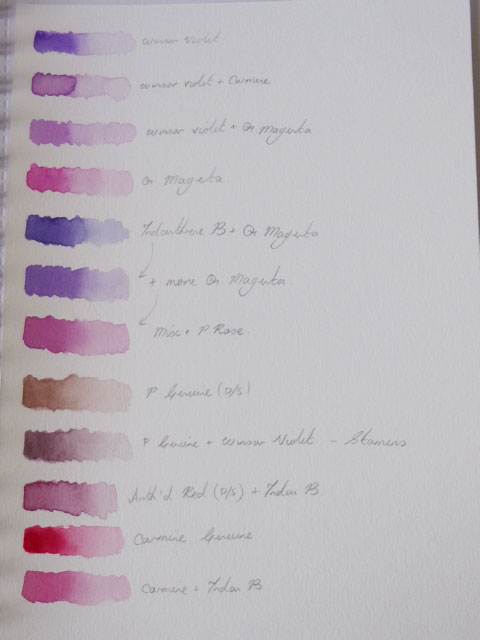 winsor violet
winsor violet + Carmine
winsor violet + Qn magenta
Qn Magenta
Indanthrene B + Qn Magenta
+ more Qn Magenta.
Mix + P Rose.
P Genuine (D/S)
P Genuine + winsor Violet - Stamins
Anth'd Red (D/S) + Indan B
Carmine Genuine
Carmine + Indan B